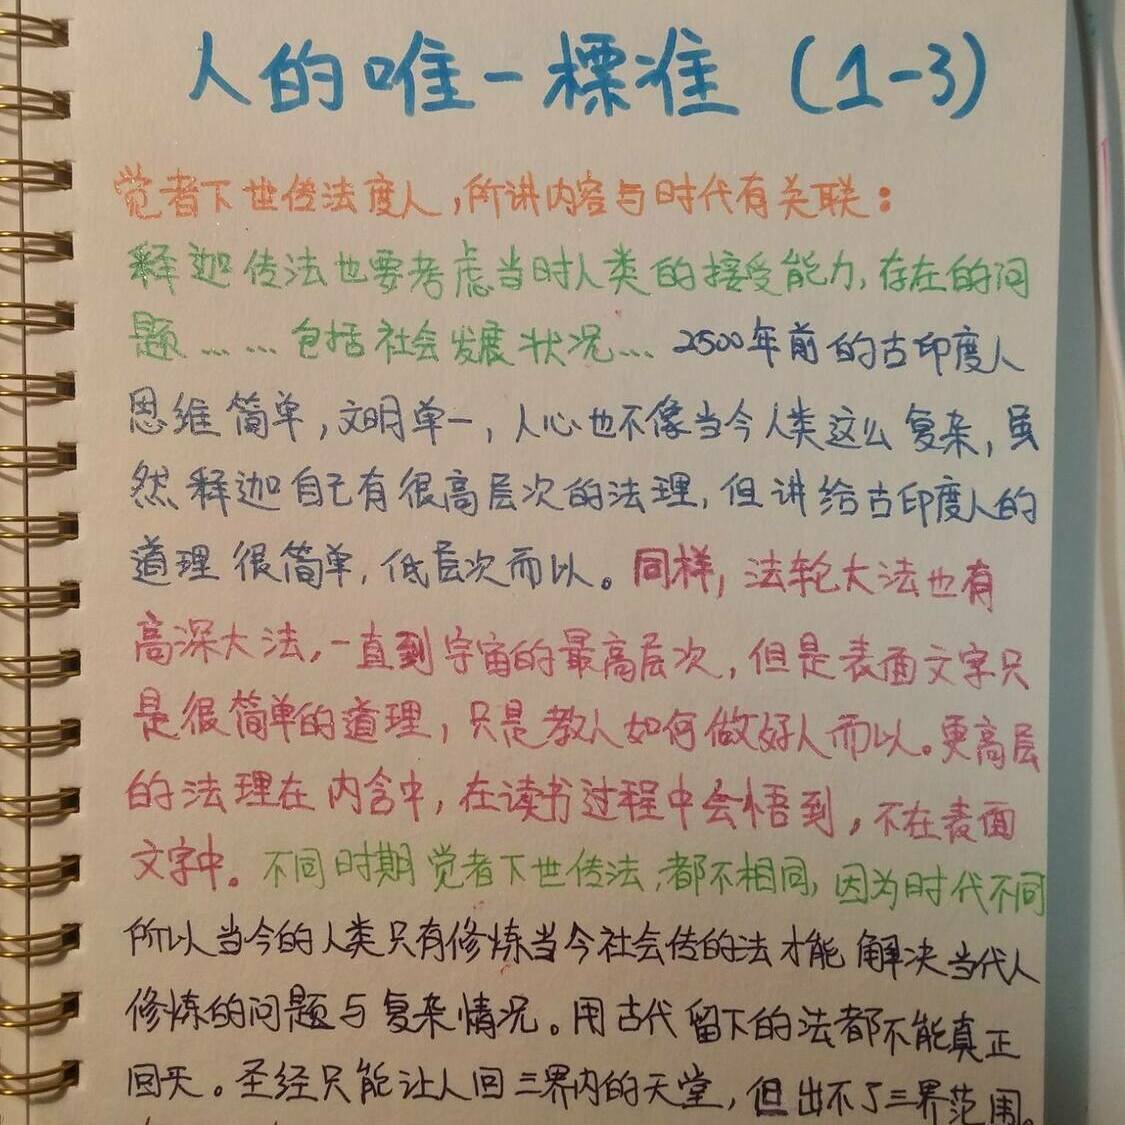 人的唯一標准（1-3）
觉者下世传法度人，所讲内容与时代有关联：
释迦传法也要考虑当时人类的接受能力，存在的问
题……包括社会发展状况… 2500年前的古印度人
思维简单，文明单一，人心也不像当今人类这么复杂，虽
然释迦自己有很高层次的法理，但讲给古印度人的
道理很简单，低层次而以。同样，法轮大法也有
高深大法，一直到宇宙的最高层次，但是表面文字只
是很简单的道理，只是教人如何做好人而以。更高层
的法理在内含中，在读书过程中会悟到，不在表面
文字中。不同时期觉者下世传法，都不相同，因为时代不同
所以当今的人类只有修炼当今社会传的法才能解决当代人
修炼的问题与复杂情况。用古代留下的法都不能真正
回天。圣经只能让人回三界内的天堂，但出不了三界范围。